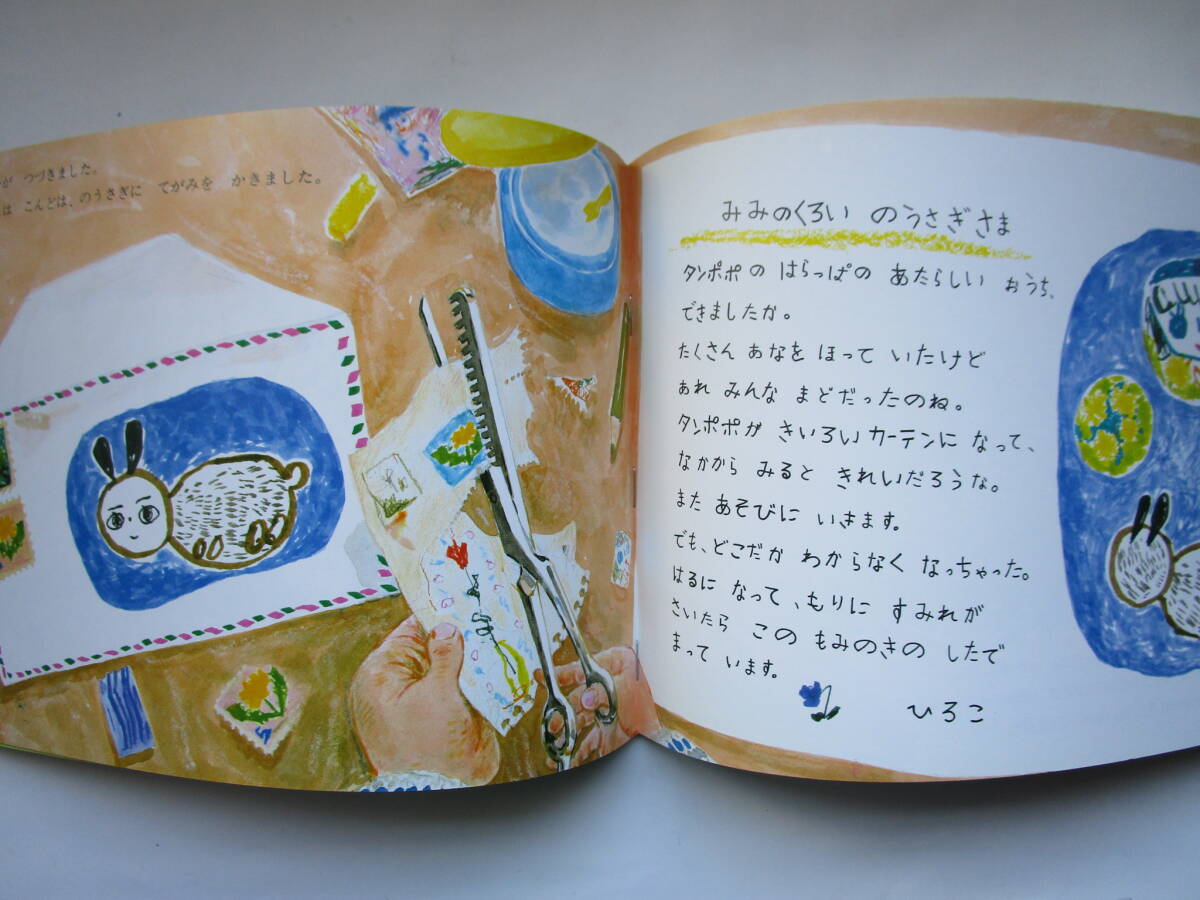 が つづきました。
は こんどは、のうさぎに てがみを かきました。
みみのくろい のうさぎさま
タンポポの はらっぱの あたらしい おうち、
できましたか。
たくさん あなを ほって いたけど
あれ みんな まどだったのね。
タンポポが きいろいカーテンに なって、
なかから みると きれいだろうな。
また あそびに いきます。
でも、どこだか わからなく なっちゃった。
はるに なって、もりに すみれが
さいたら この もみのきの したで
まって います。
ひろこ